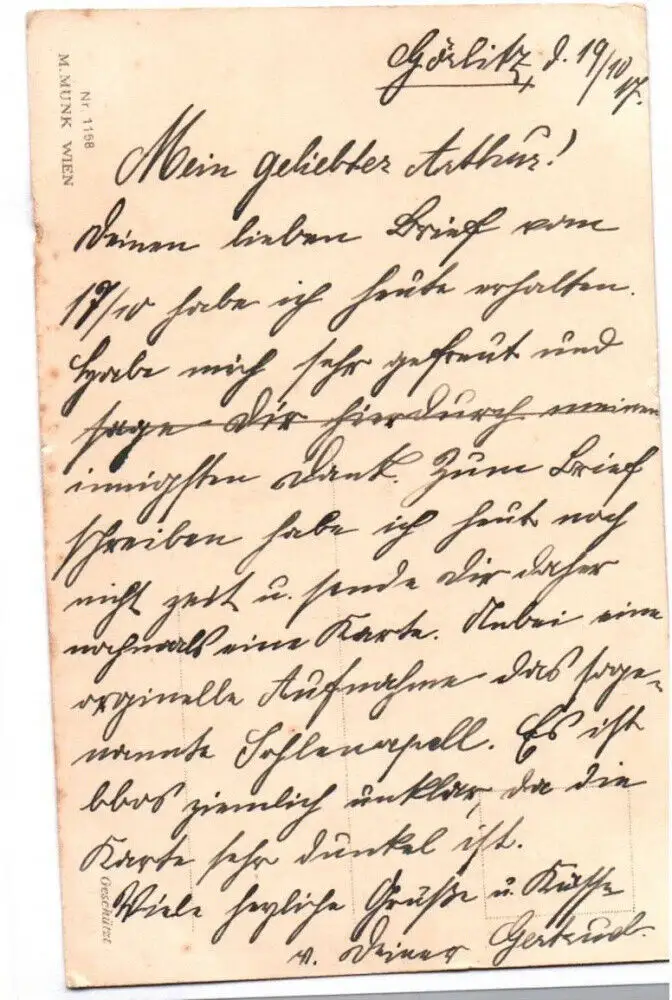 Görlitz, d. 19/10 17.
Mein geliebter Arthur!
Deinen lieben Brief vom
17/10 habe ich heute erhalten.
Habe mich sehr gefreut und
sage Dir hierdurch meinen
innigsten Dank. Zum Brief
schreiben habe ich heut noch
nicht zeit u. sende Dir daher
nochmals eine Karte. Anbei eine
orginelle Aufnahme das soge-
nannte Sohlenapell. Es ist
blos ziemlich unklar, da die
Karte sehr dunkel ist.
Viele herzliche Grüße u. Küsse
v. Deiner Gertrud.
Nr. 1158
M. MUNK WIEN
Geschützt